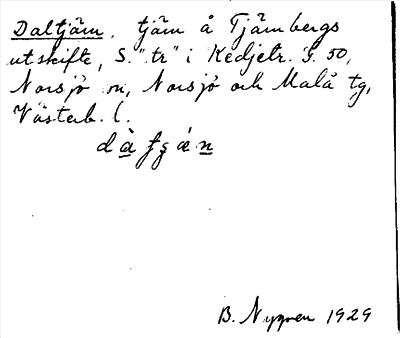 Daltjärn, tjärn å Tjärnbergs
utskifte, S. "tr" i Kedjetr. G. 50,
Norsjö sn, Norsjö och Malå tg,
Västerb. l.
B. Nygren 1929